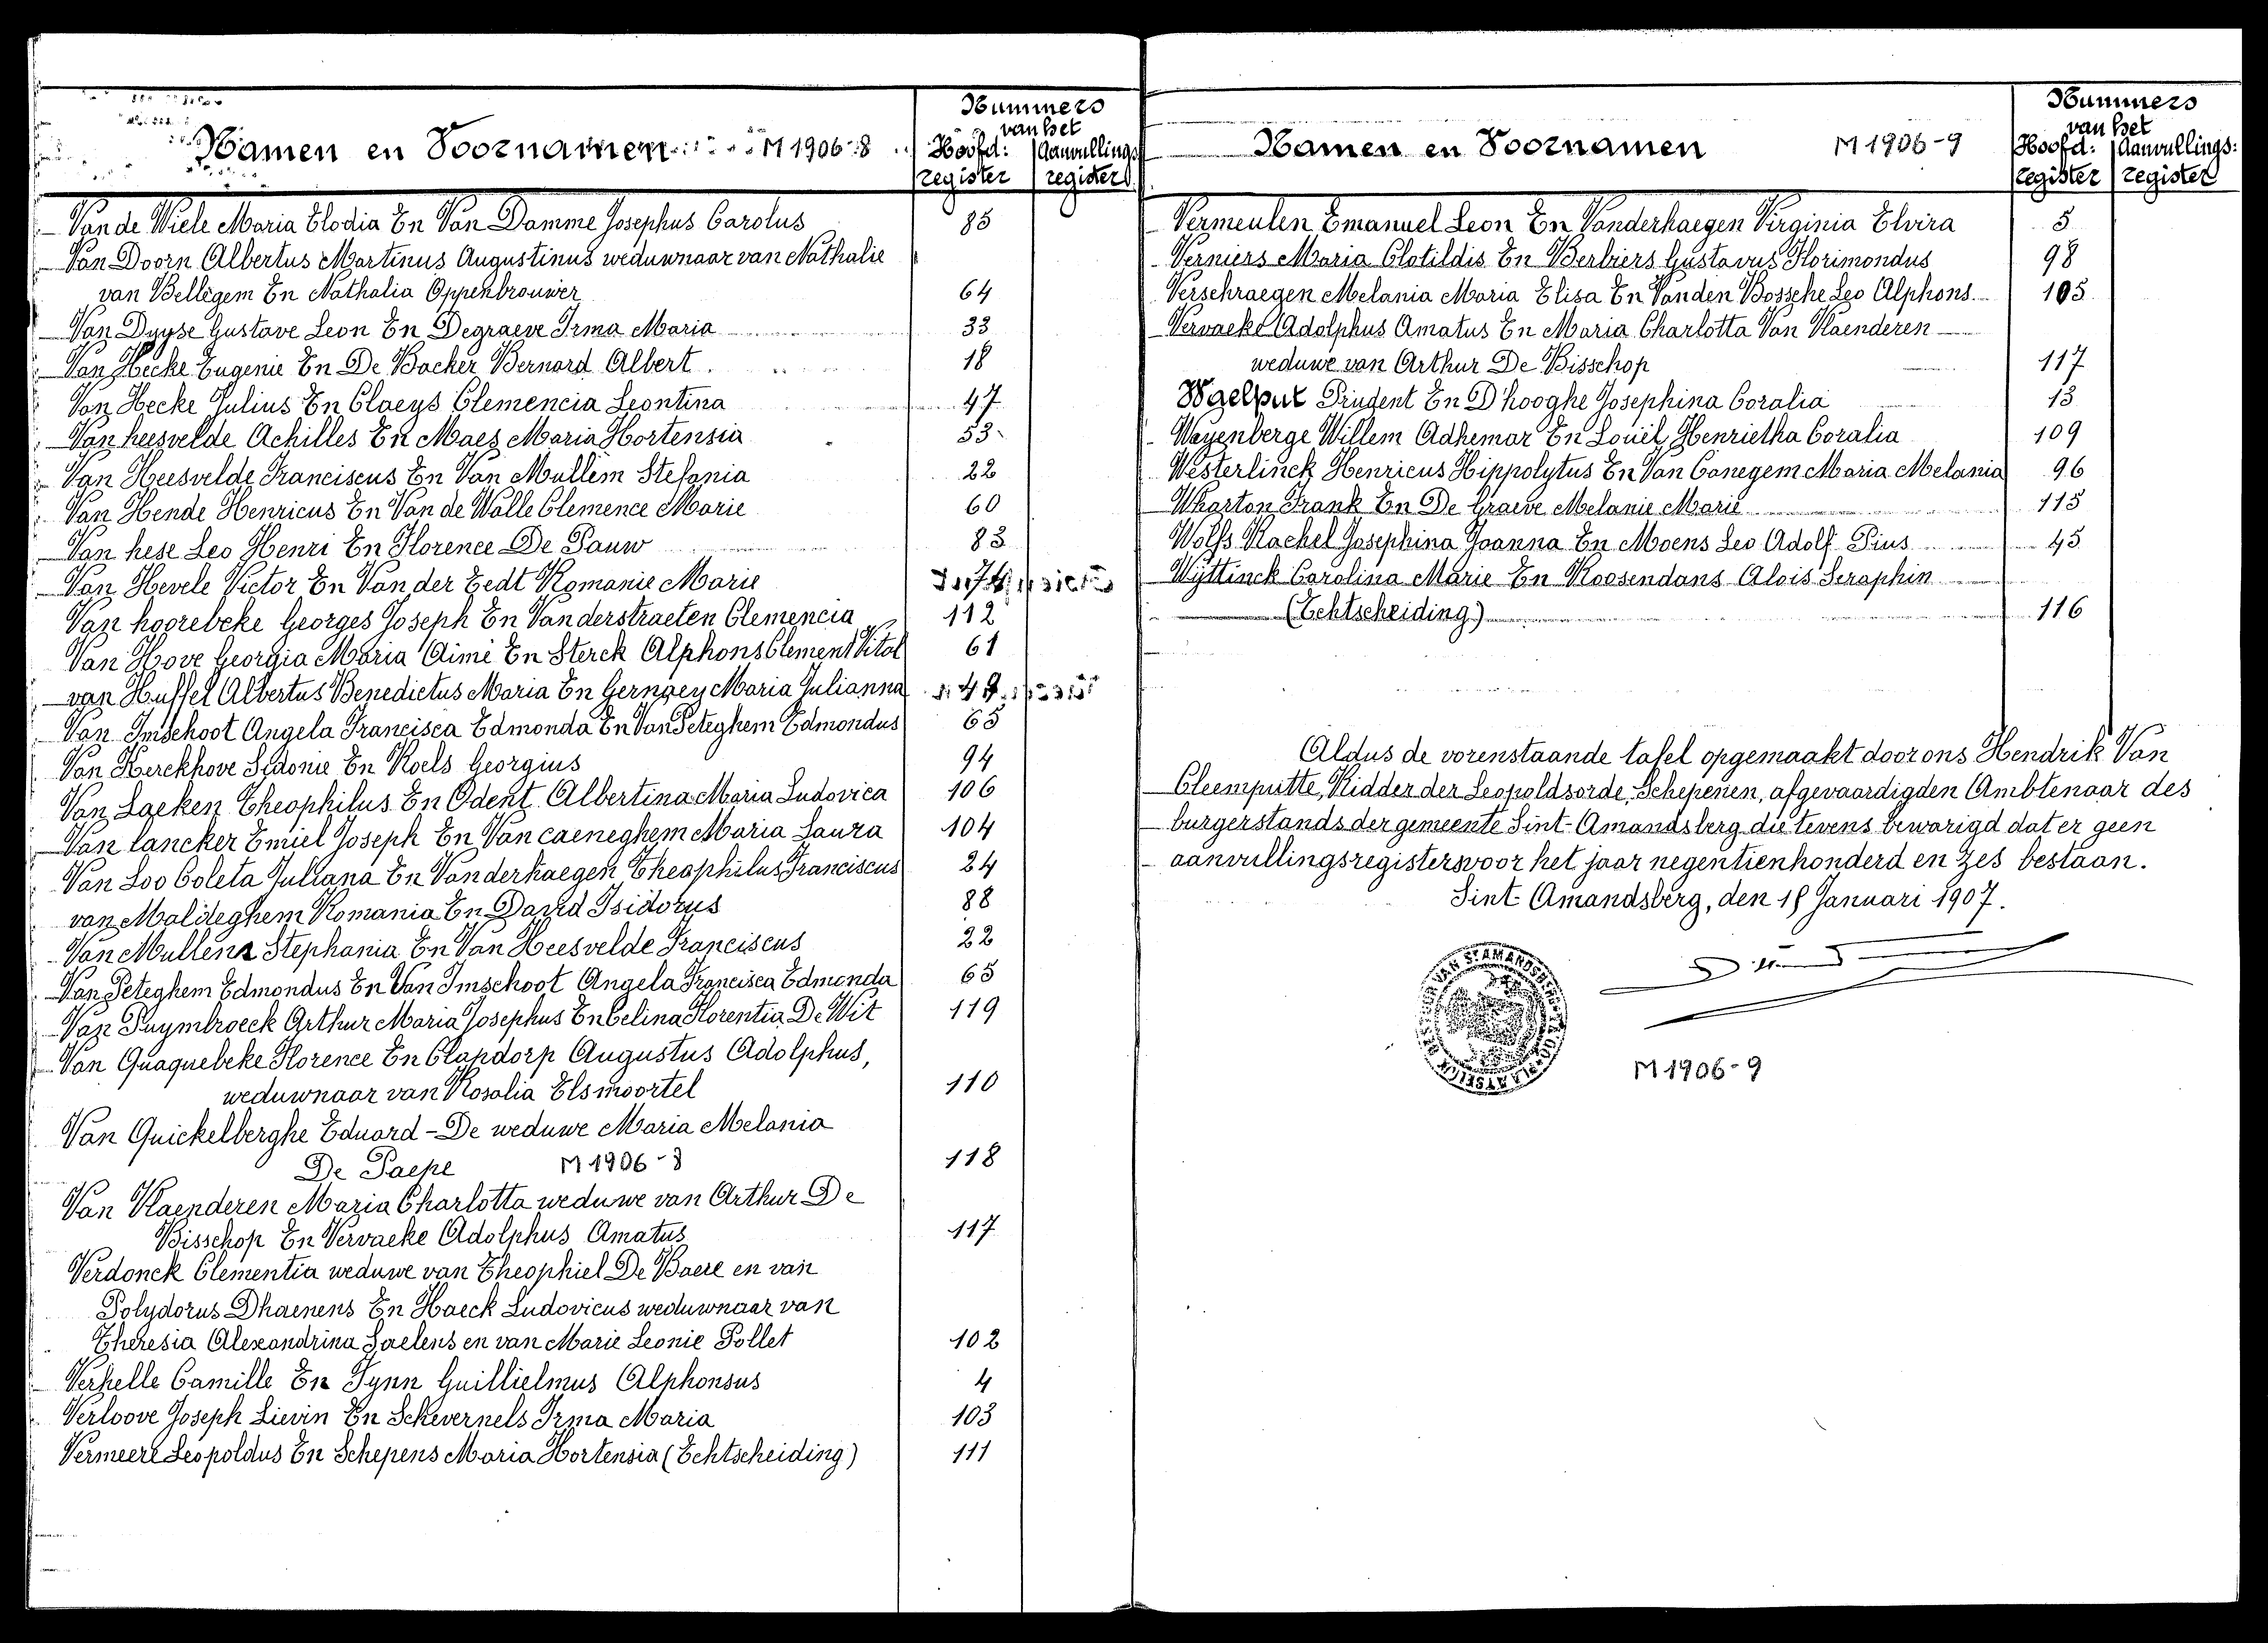 Namen en Voornamen M 1906-8
Nummers
van het
Hoofd: Aanvullings
register register
Van de Wiele Maria Elodia En Van Damme Josephus Carolus 85
Van Doorn Albertus Martinus Augustinus weduwnaar van Nathalie
van Bellegem En Nathalia Oppenbrouwer 64
Van Duyse Gustave Leon En Degraeve Irma Maria 33
Van Hecke Eugenie En De Backer Bernard Albert 18
Van Hecke Julius En Claeys Clemencia Leontina 47
Van heesvelde Achilles En Maes Maria Hortensia 53
Van Heesvelde Franciscus En Van Mullem Stefania 22
Van Hende Henricus En Van de Walle Clemence Marie 60
Van hese Leo Henri En Florence De Pauw 83
Van Hevele Victor En Van der Eedt Romanie Marie 74
Van hoorebeke Georges Joseph En Vanderstraeten Clemencia 112
Van Hove Georgia Maria Aimé En Sterck Alphons Clement Vital 61
van Huffel Albertus Benedictus Maria En Gernaey Maria Julianna 49
Van Imschoot Angela Francisca Edmonda En Van Peteghem Edmondus 65
Van Kerckhove Sidonie En Roels Georgius 94
Van Laeken Theophilus En Odent Albertina Maria Ludovica 106
Van lancker Emiel Joseph En Van caeneghem Maria Laura 104
Van Loo Coleta Juliana En Vanderhaegen Theophilus Franciscus 24
van Maldeghem Romania En David Isidorus 88
Van Mullem Stephania En Van Heesvelde Franciscus 22
Van Peteghem Edmondus En Van Imschoot Angela Francisca Edmonda 65
Van Puymbroeck Arthur Maria Josephus En Celina Florentia De Wit 119
Van Quaquebeke Florence En Clapdorp Augustus Adolphus,
weduwnaar van Rosalia Elsmoortel 110
Van Quickelberghe Eduard - De weduwe Maria Melania
De Paepe M 1906-8 118
Van Vlaenderen Maria Charlotta weduwe van Arthur De
Bisschop En Vervaeke Adolphus Amatus 117
Verdonck Clementia weduwe van Theophiel De Baere en van
Polydorus Dhaenens En Haeck Ludovicus weduwnaar van
Theresia Alexandrina Saelens en van Marie Leonie Pollet 102
Verhelle Camille En Tynn Guillielmus Alphonsus 4
Verloove Joseph Lievin En Schevernels Irma Maria 103
Vermeere Leopoldus En Schepens Maria Hortensia (Echtscheiding) 111
Namen en Voornamen M 1906-9
Nummers
van het
Hoofd: Aanvullings:
register register
Vermeulen Emanuel Leon En Vanderhaegen Virginia Elvira 5
Verniers Maria Clotildis En Berbiers Gustavus Florimondus 98
Verschraegen Melania Maria Elisa En Vanden Bossche Leo Alphons 105
Vervaeke Adolphus Amatus En Maria Charlotta Van Vlaenderen
weduwe van Arthur De Bisschop 117
Waelput Prudent En D'hooghe Josephina Coralia 13
Wayenberge Willem Adhemar En Louël Henrietha Coralia 109
Westerlinck Henricus Hippolytus En Van Canegem Maria Melania 96
Wharton Frank En De Graeve Melanie Marie 115
Wolfs Rachel Josephina Joanna En Moens Leo Adolf Pius 45
Wyttinck Carolina Marie En Roosendans Alois Seraphin
(Echtscheiding) 116
Aldus de vorenstaande tafel opgemaakt door ons Hendrik Van
Cleemputte, Ridder der Leopoldsorde, Schepenen, afgevaardigden Ambtenaar des
burgerstands der gemeente Sint-Amandsberg die tevens bewarigd dat er geen
aanvullingsregisters voor het jaar negentienhonderd en zes bestaan.
Sint Amandsberg, den 18 Januari 1907.
PLAATSELIJK BESTUUR VAN ST AMANDSBERG
M 1906-9